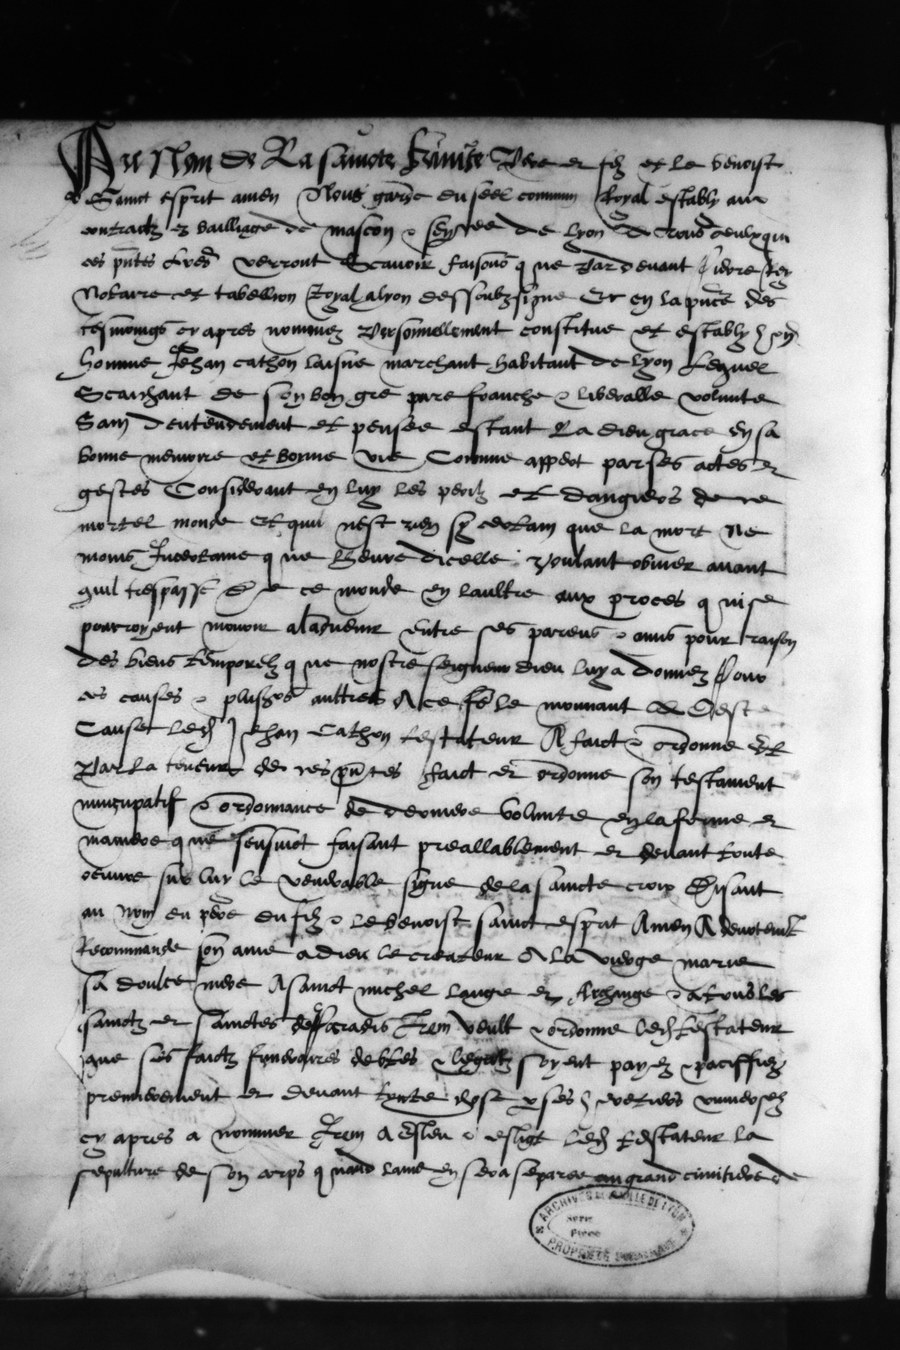 Au Nom de La saincte Trinite Pere et filz et le benoist
Sainct esprit amen Nous garde du seel commun Royal estably aux
contractz es bailliage de mascon & sen de lyon A tous ceulx qui
ces pntes lres verront Scavoir faisons que par devant pierre
Notaire et tabellion Royal a lyon dessoubzsigne Et en la pnce des
tesmoings cy apres nommez personnellement constitue et estably
homme Jehan cathon laisne marchant habitant de lyon Lequel
Scaichant de son bon gre pure franche & liberalle volunte
Sain dentendement et pensee estant La dieu grace en sa
bonne memoire et bonne vie Comme appert par ses actes et
gestes Considerant en luy les perilz et dangiers de ce
mortel monde Et quil nest rien sy certain que la mort Ne
moins Incertaine que lheure dicelle Voulant obvier avant
quil trespasse de ce monde en laultre aux proces qui se
pourroyent mouvoir aladvenir entre ses parens & amis pour raison
des biens temporelz que nostre seigneur dieu luy a donnez Pour
ces causes & plusrs aultres A ce fe le mouvant
Causes led Jehan Cathon testateur A faict & ordonne Et
Par la teneur de ces pntes faict et ordonne son testament
nuncupatif & ordonnance de derniere volunte en la forme et
maniere que sensuict faisant preallablement et devant toute
oeuvre sur luy le venerable signe de la saincte croix Disant
au nom du pere du filz & le benoist sainct esprit Amen A devotemt
recommande son ame a dieu le createur A la vierge marie
sa doulce mere A sainct michel lange et Archange & a tous les
sainctz et sainctes de paradis Item veult & ordonne led testateur
que ses faictz funeraires debtes & legatz soyent payez & paciffiez
premierement et devant toute chose par ses heretiers universelz
cy apres a nommer Item A esleu & eslict led testateur la
sepulture de son corps quand lame en sera separee au grand cimitiere de
ARCHIVES DE LA VILLE DE LYON
Serie
Piece
PROPRIETE